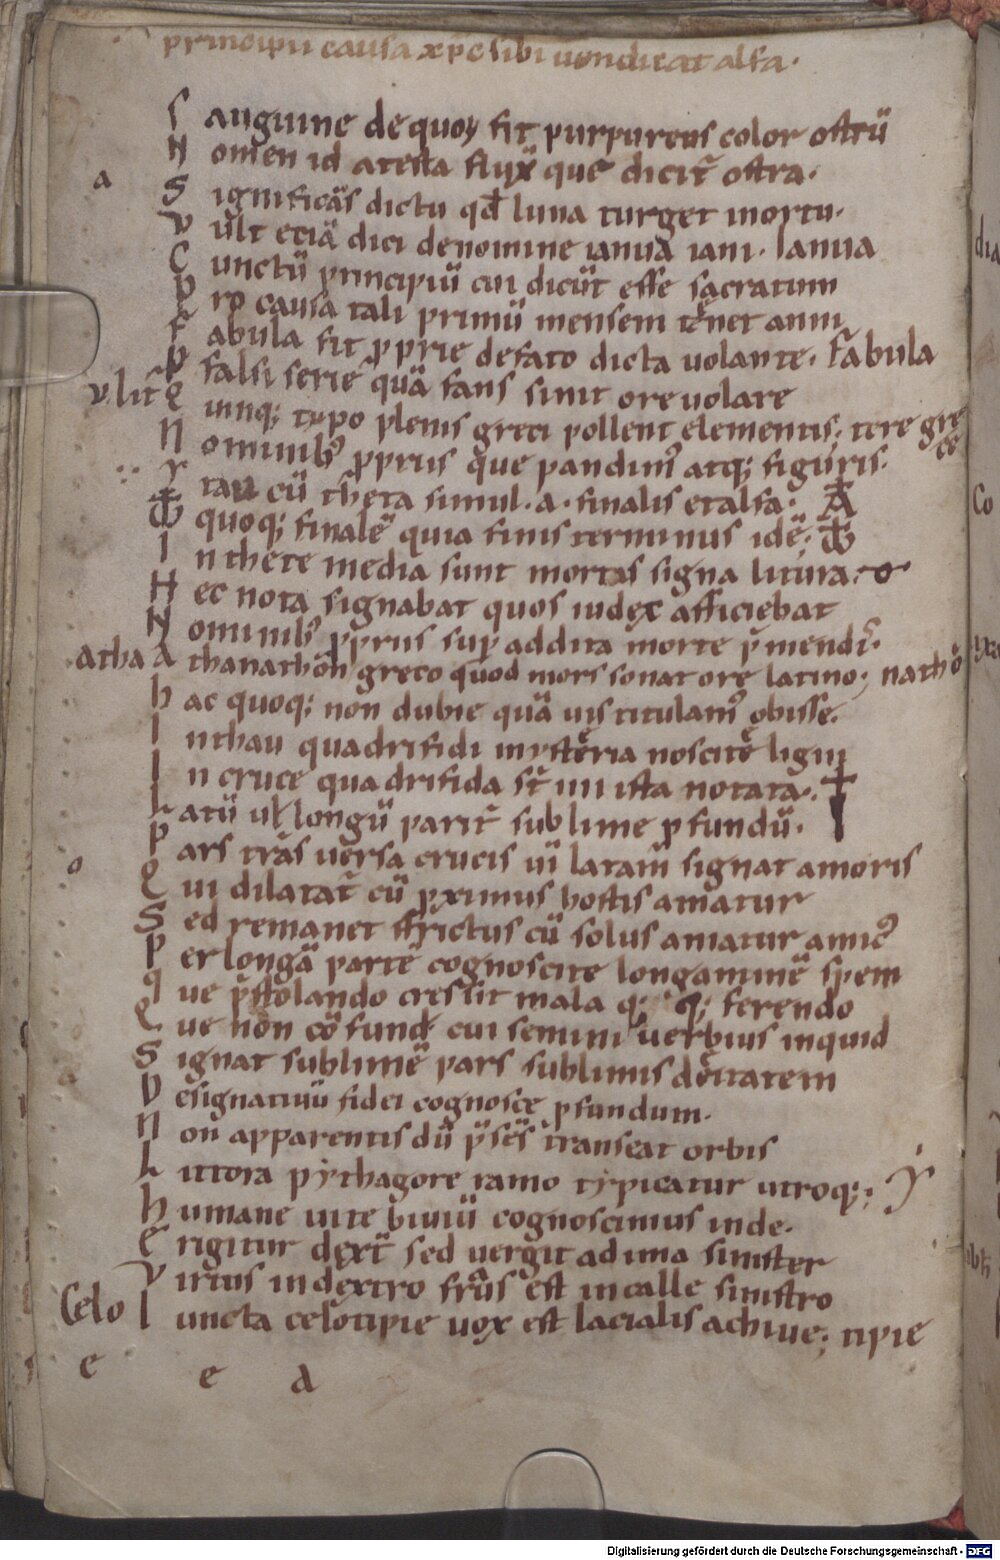 principii causa xp̄c sibi uendicat alfa·
S anguine de quoꝝ fit purpureus color ostrū
N omen id a testa fluxͥ que dicit᷑ ostra·
a S ignificās dictu qđ luna turget in ortu·
V ult etiā dici de nomine ianua iani· Ianua
C unctū principiū cui dicūt esse sacratum
P ro causa tali primū mensem tenet anni
F abula fit ꝓprie de fato dicta uolante· Fabula
P falsi serie quā fans sinit ore uolare
vlit᷑ Q uinq; typo plenis greci pollent elementis; tere gre
ce
N ominib᷒ ꝓpriis que pandim᷒ atq; figuris·
Y tau cū theta simul· a· finalis et alfa· A
ω quoq; finalē quia finis terminus idē· ω
I n thete media sunt mortas signa litura· θ
H ec nota signabat quos iudex afficiebat
N ominib᷒ ꝓpriis suꝑ addita morte p̄mendis·
Atha A thanathōn greco quod mors sonat ore latino; nathō
h ac quoq; non dubie quā uis titulam᷒ obisse·
I n thau quadrifidi mysteria noscite ligni
I n cruce quadrifida st̄ iiii ista notata· †
L atū uł longū parit᷑ sublime ꝓfundū·
P ars trās uersa crucis uī latam̄ signat amoris
o Q ui dilatat᷑ cū ꝓximus hostis amatur
S ed remanet strictus cū solus amatur amic᷒
P er longā partē cognoscite longaminē spem
q ue p̄stolando crescit mala q; q; ferendo
Q ue non cōfund᷑ cui semini uerbius inquid
S ignat sublimē pars sublimis dēitatem
D esignatiuū fidei cognosce ꝓfundum·
N on apparentis dū p̄sēs transeat orbis
L ittora pythagore ramo typicatur utroq; ; Y
h umane uite biuiū cognoscimus inde·
E rigitur dext᷑ sed uergit ad ima sinister
V irtus in dextro fraus est in calle sinistro
Celo I uncta celotipie uox est lacialis achiue; tipie
e e a
dia
Co
Digitalisierung gefördert durch die Deutsche Forschungsgemeinschaft - DFG